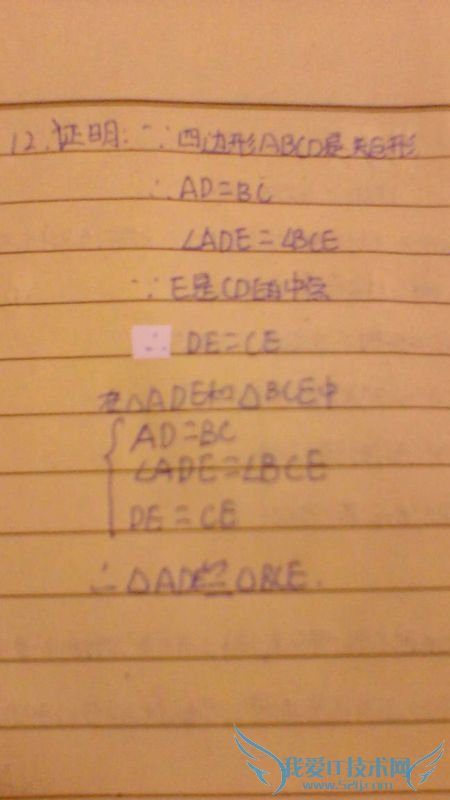 12.证明:∵四边形ABCD是矩形
∴AD=BC
∠ADE=∠BCE
∵E是CD的中点
∴ DE=CE
在△ADE和△BCE中
AD=BC
∠ADE=∠BCE
DE=CE
∴△ADE≌△BCE.
我爱IT技术网
www.52ij.com